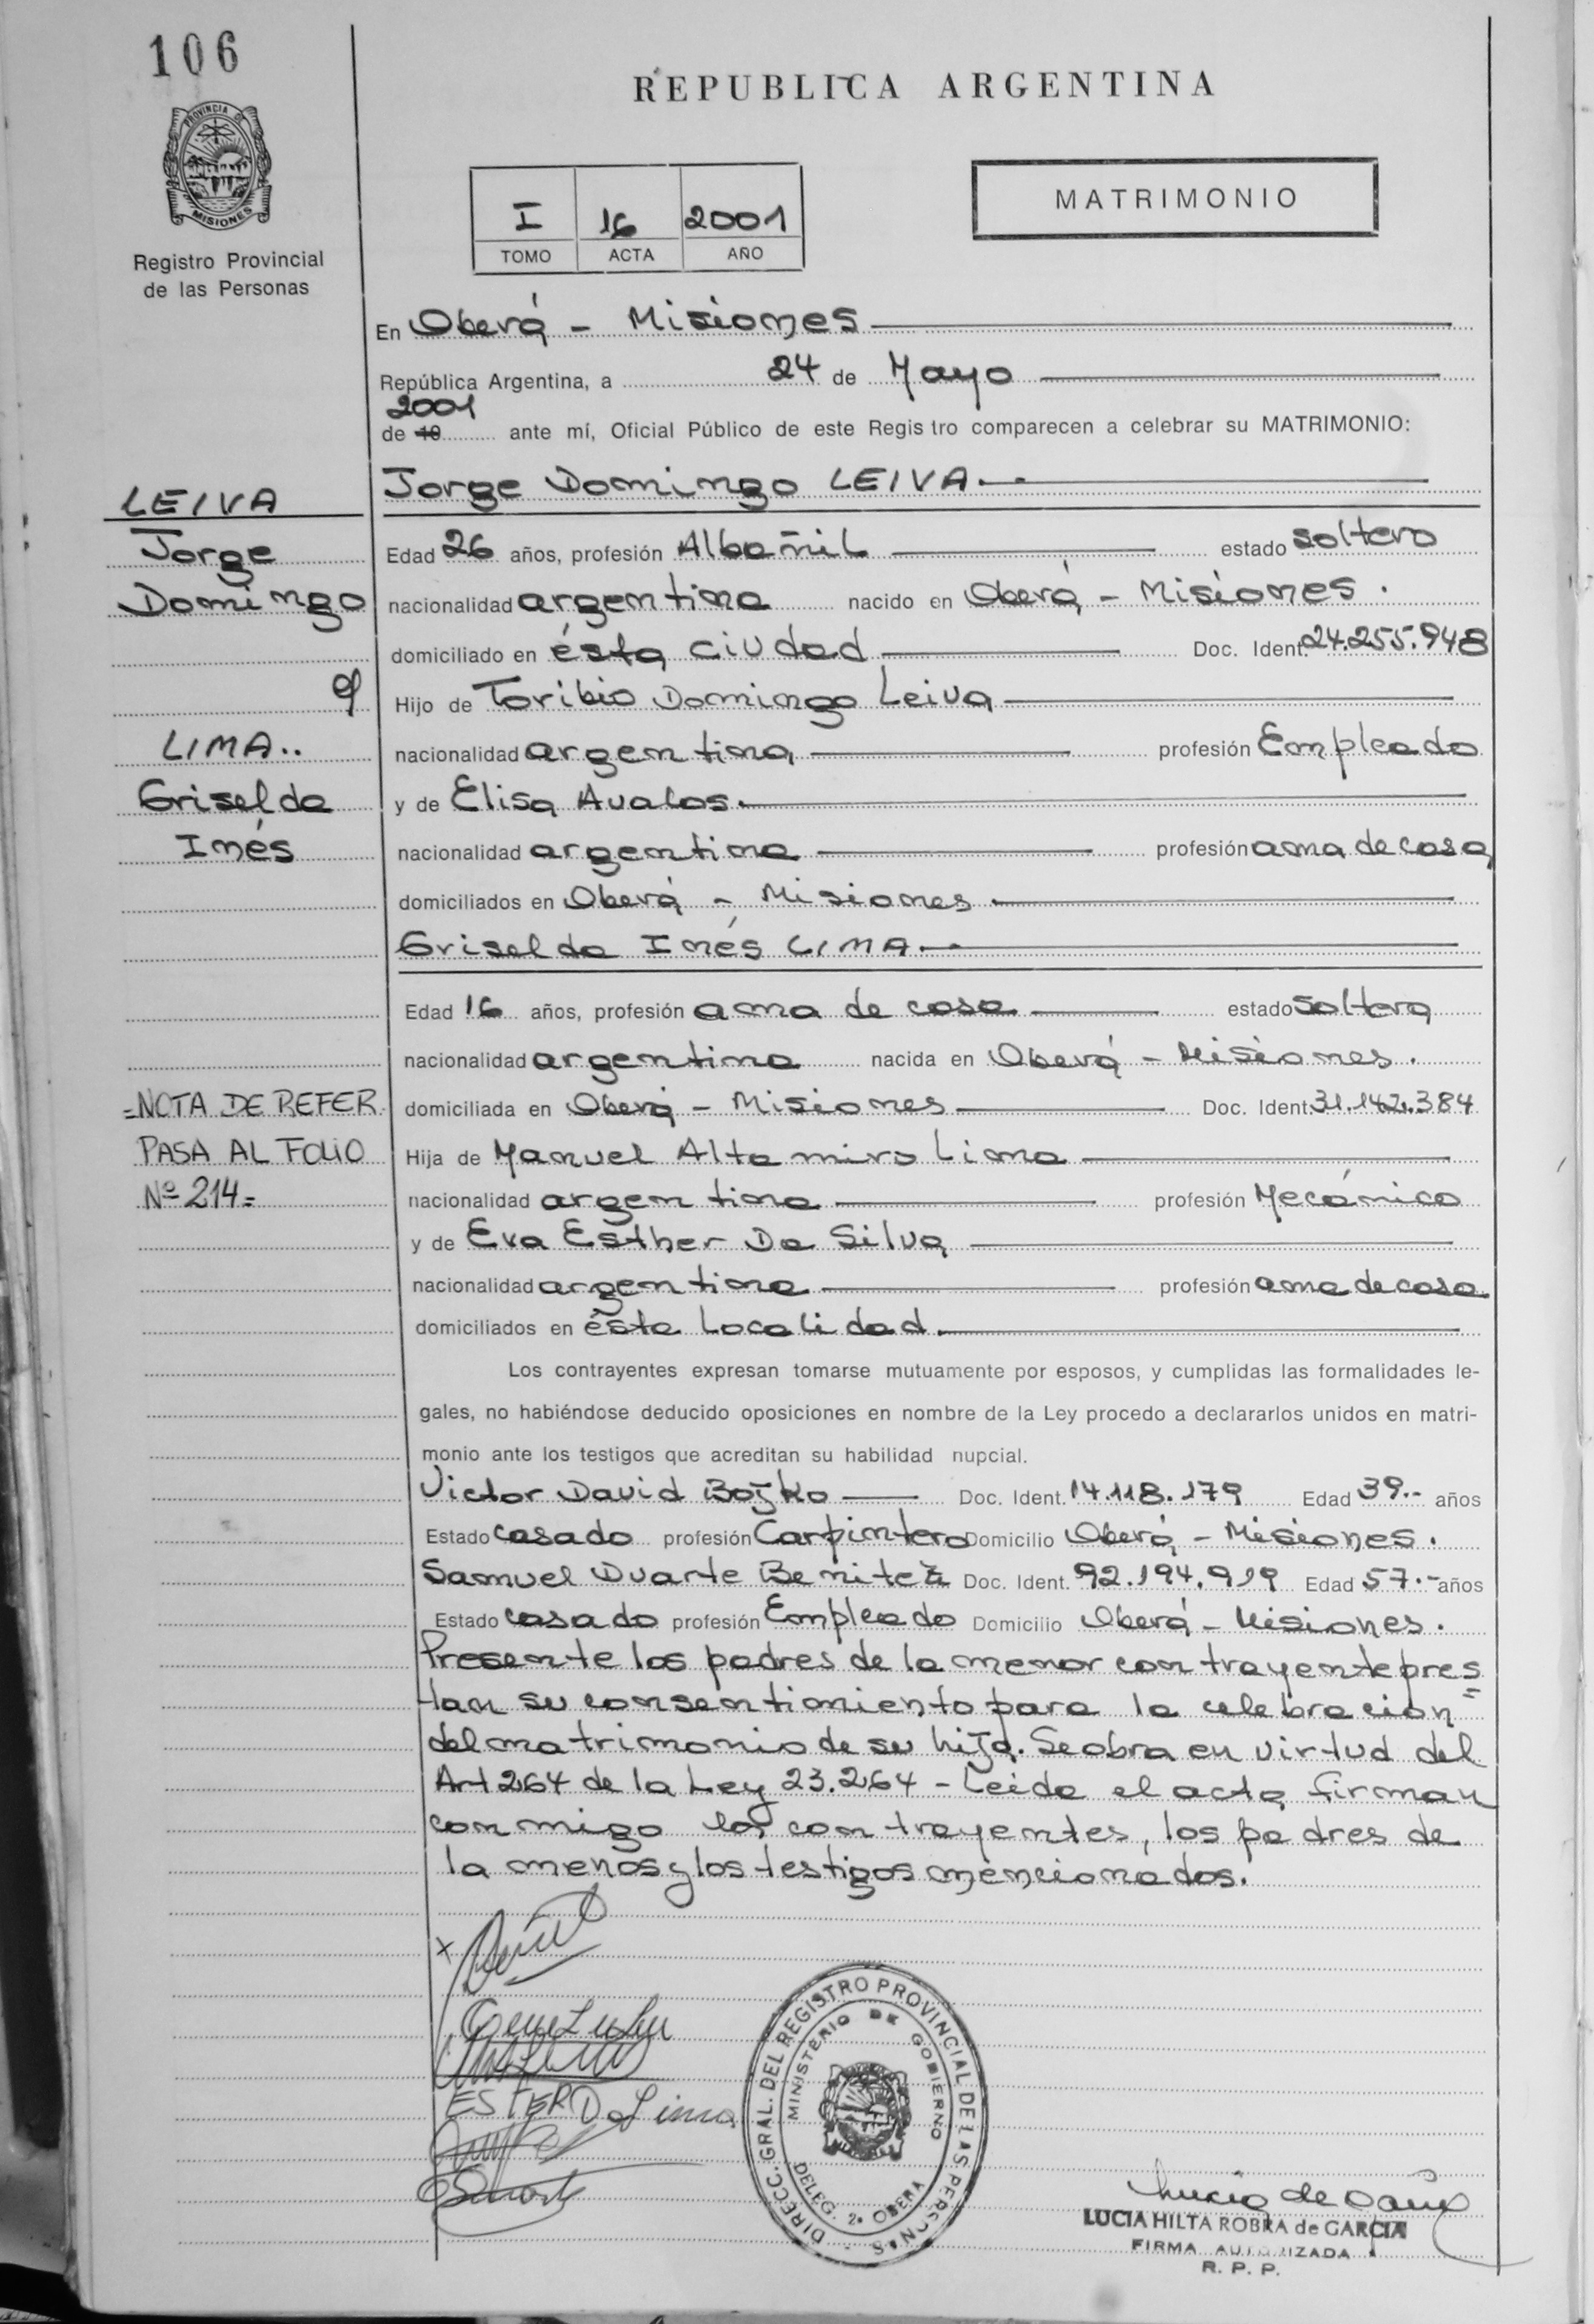 106
REPUBLICA ARGENTINA
PROVINCIA DE
MISIONES
Registro Provincial
de las Personas
I 16 2001
TOMO ACTA AÑO
MATRIMONIO
En Oberá - Misiones
República Argentina, a 24 de Mayo
2001
de 19 ante mí, Oficial Público de este Registro comparecen a celebrar su MATRIMONIO:
Jorge Domingo LEIVA.-
LEIVA
Jorge
Domingo
LIMA..
Griselda
Inés
=NOTA DE REFER.
PASA AL FOLIO
Nº 214=
Edad 26 años, profesión Albañil estado soltero
nacionalidad argentina nacido en Oberá - Misiones.
domiciliado en ésta ciudad Doc. Ident. 24.255.948
Hijo de Toribio Domingo Leiva
nacionalidad argentina profesión Empleado
y de Elisa Avalos.
nacionalidad argentina profesión ama de casa
domiciliados en Oberá - Misiones.
Griselda Inés LIMA.-
Edad 16 años, profesión ama de casa estado soltera
nacionalidad argentina nacida en Oberá - Misiones.
domiciliada en Oberá - Misiones Doc. Ident. 31.142.384
Hija de Manuel Altamiro Lima
nacionalidad argentina profesión Mecánico
y de Eva Esther Da Silva
nacionalidad argentina profesión ama de casa
domiciliados en ésta Localidad.
Los contrayentes expresan tomarse mutuamente por esposos, y cumplidas las formalidades le-
gales, no habiéndose deducido oposiciones en nombre de la Ley procedo a declararlos unidos en matri-
monio ante los testigos que acreditan su habilidad nupcial.
Victor David Bojko Doc. Ident. 14.118.179 Edad 39.- años
Estado casado profesión Carpintero Domicilio Oberá - Misiones.
Samuel Duarte Benitez Doc. Ident. 92.194.919 Edad 57.- años
Estado casado profesión Empleado Domicilio Oberá - Misiones.
Presente los padres de la menor contrayente pres
tan su consentimiento para la celebración
del matrimonio de su hija. Se obra en virtud del
Art 264 de la Ley 23.264 - Leída el acta firman
conmigo los contrayentes, los padres de
la menor y los testigos mencionados.
ESTER D Lima
DIRECC. GRAL. DEL REGISTRO PROVINCIAL DE LAS PERSONAS
MINISTERIO DE GOBIERNO
DELEG. 2ª OBERA
LUCIA HILTA ROBRA de GARCIA
FIRMA AUTORIZADA
R. P. P.